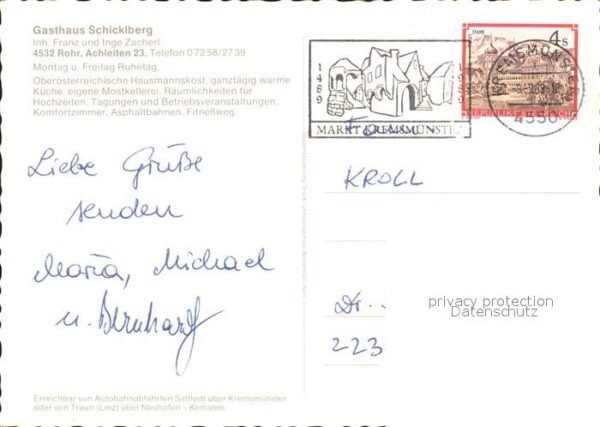 Gasthaus Schicklberg
Inh. Franz und Inge Zacherl
4532 Rohr, Achleiten 23, Telefon 0 72 58/27 39
Montag u. Freitag Ruhetag.
Oberösterreichische Hausmannskost, ganztägig warme
Küche, eigene Mostkellerei. Räumlichkeiten für
Hochzeiten, Tagungen und Betriebsveranstaltungen,
Komfortzimmer, Asphaltbahnen, Fitneßweg.
Liebe Grüße
senden
Maria, Michael
u. Bernhard
Erreichbar von Autobahnabfahrten Sattledt über Kremsmünster
oder von Traun (Linz) über Neuhofen – Kematen.
1489
MARKT KREMSMÜNSTER
STAMS
4 S
REPUBLIK ÖSTERREICH
KREMSMÜNSTER
4550
KROLL
Dr...
223
privacy protection
Datenschutz